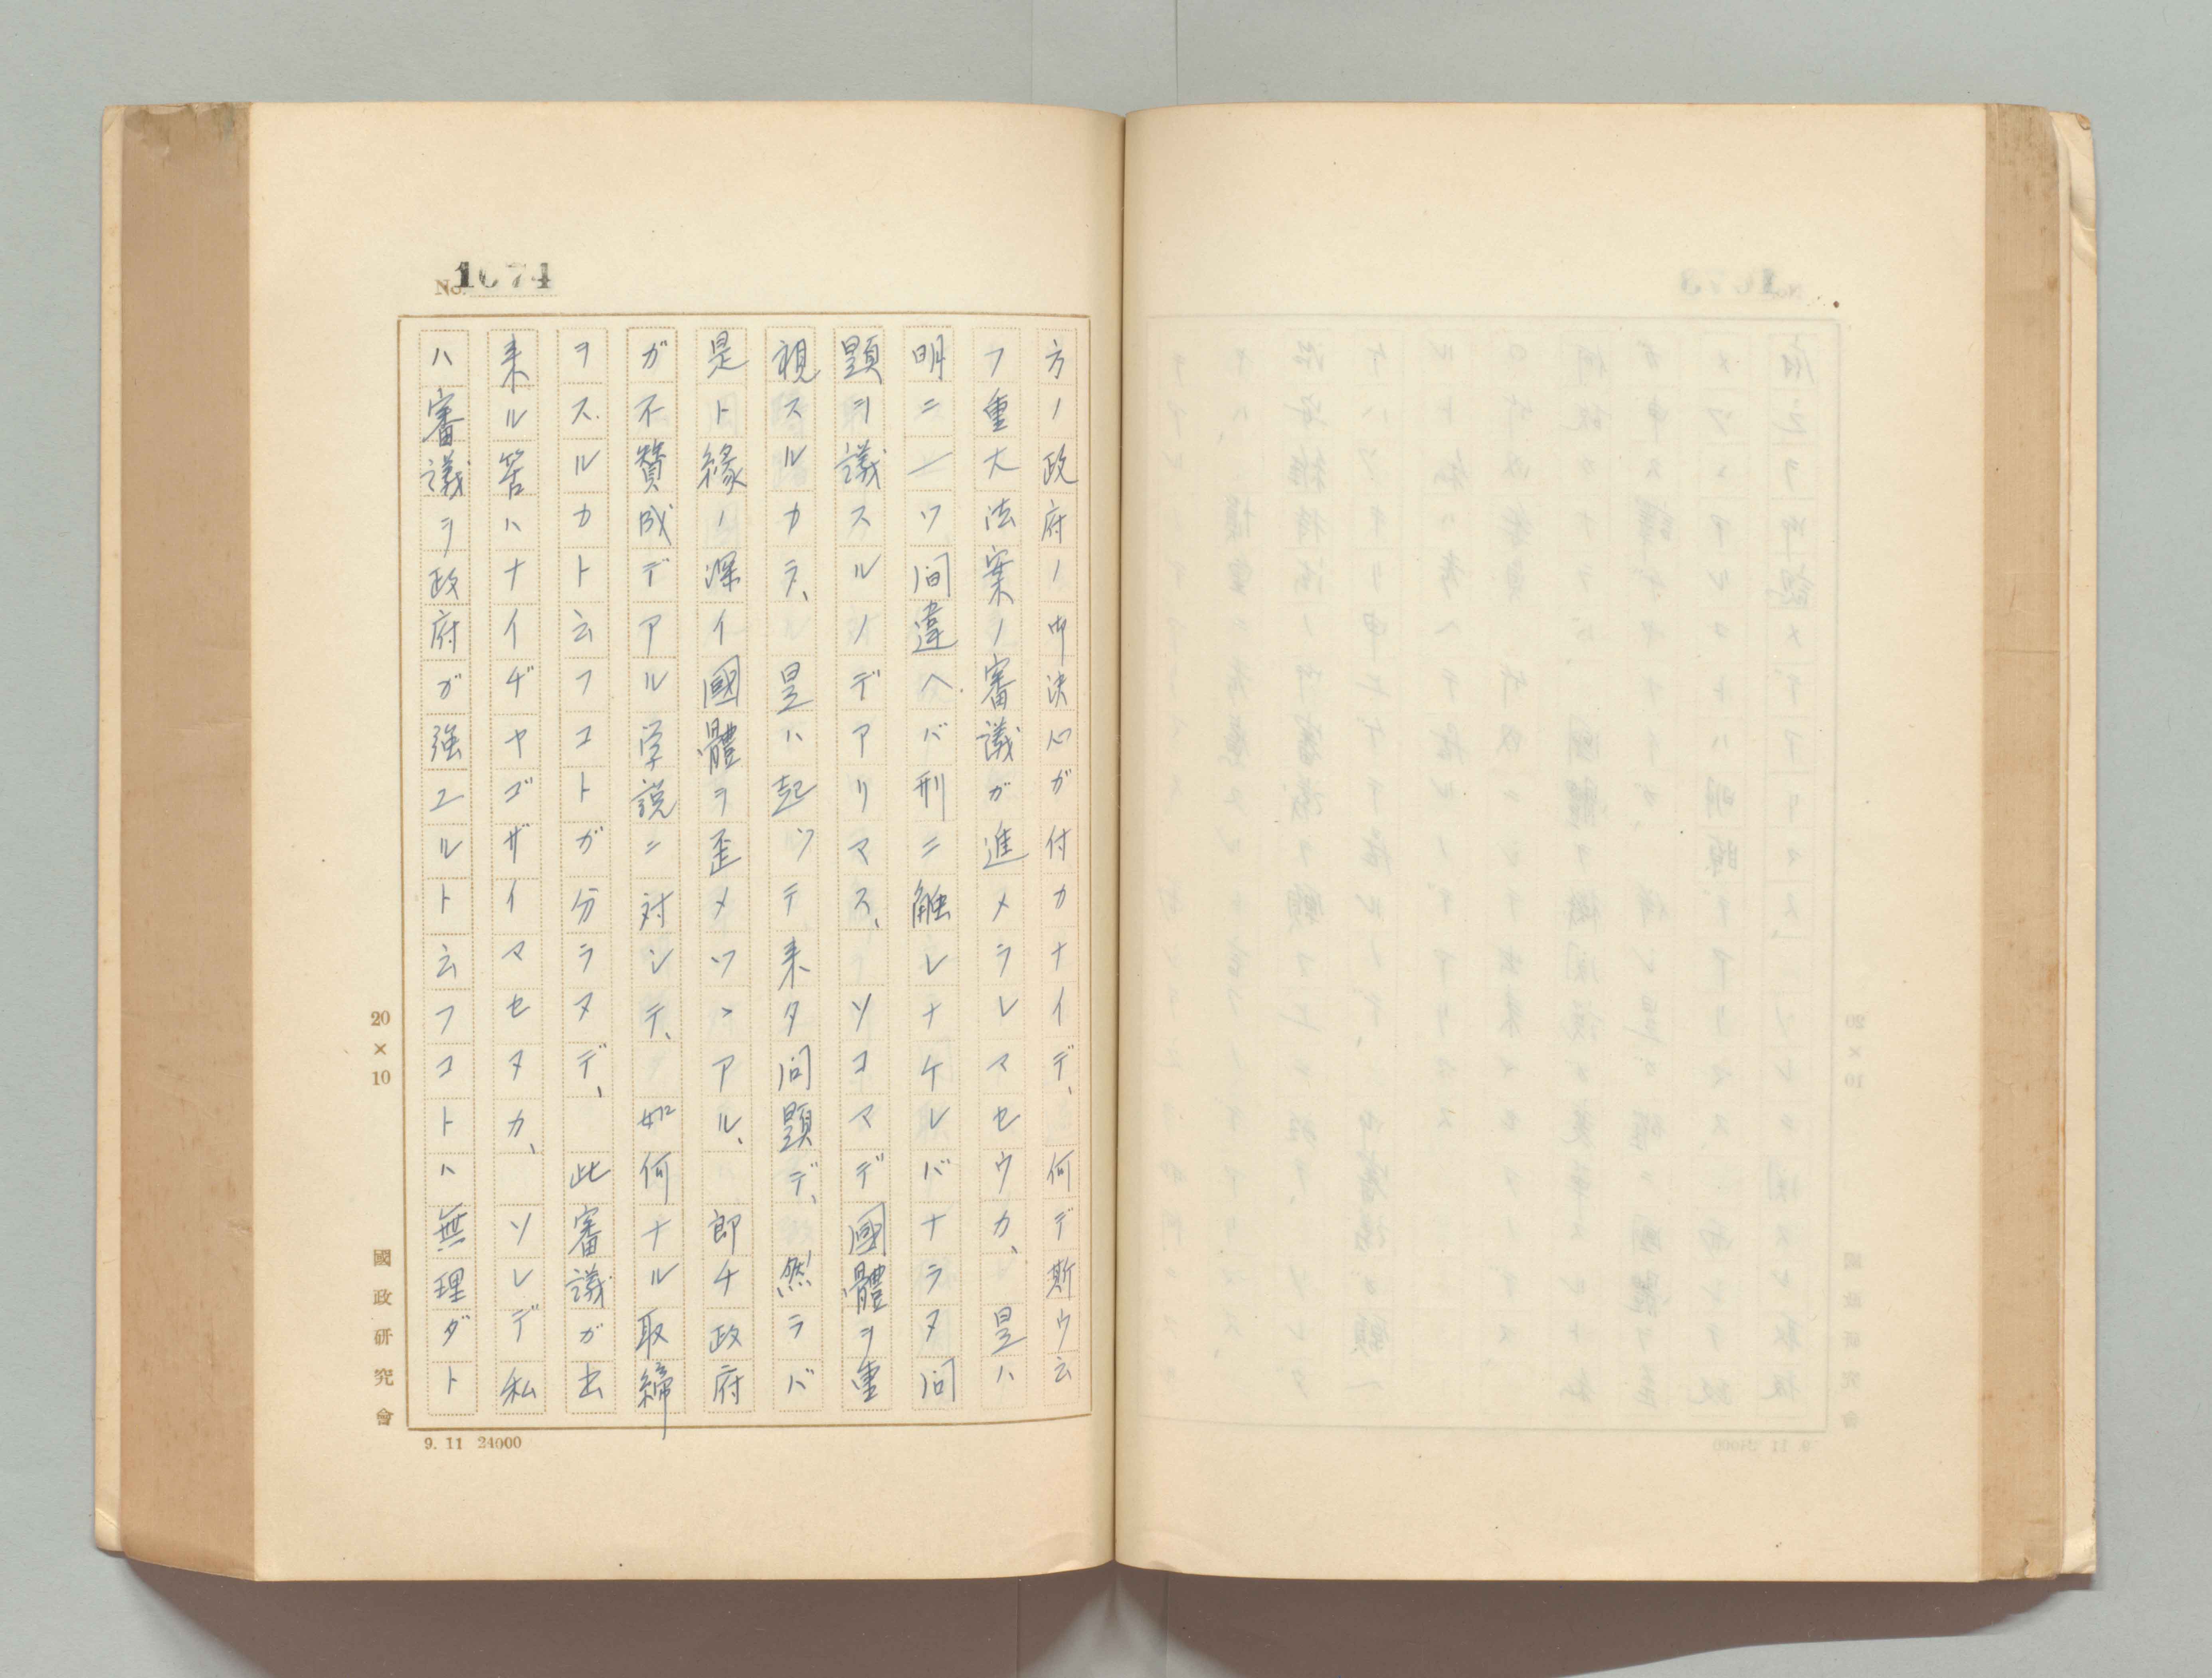 No. 1074
方ノ政府ノ御決心ガ付カナイデ、何デ斯ウ云
フ重大法案ノ審議ガ進メラレマセウカ、是ハ
明ニ一ツ間違ヘバ刑ニ触レナケレバナラヌ問
題ヲ議スルノデアリマス、ソコマデ國體ヲ重
視スルカラ、是ハ起ツテ来タ問題デ、然ラバ
是ト縁ノ深イ國體ヲ歪メツヽアル、即チ政府
ガ不賛成デアル学説ニ対シテ、如何ナル取締
ヲスルカト云フコトガ分ラヌデ、此審議ガ出
来ル筈ハナイヂヤゴザイマセヌカ、ソレデ私
ハ審議ヲ政府ガ強ユルト云フコトハ無理ダト
20×10
國政研究會
9. 11 24000